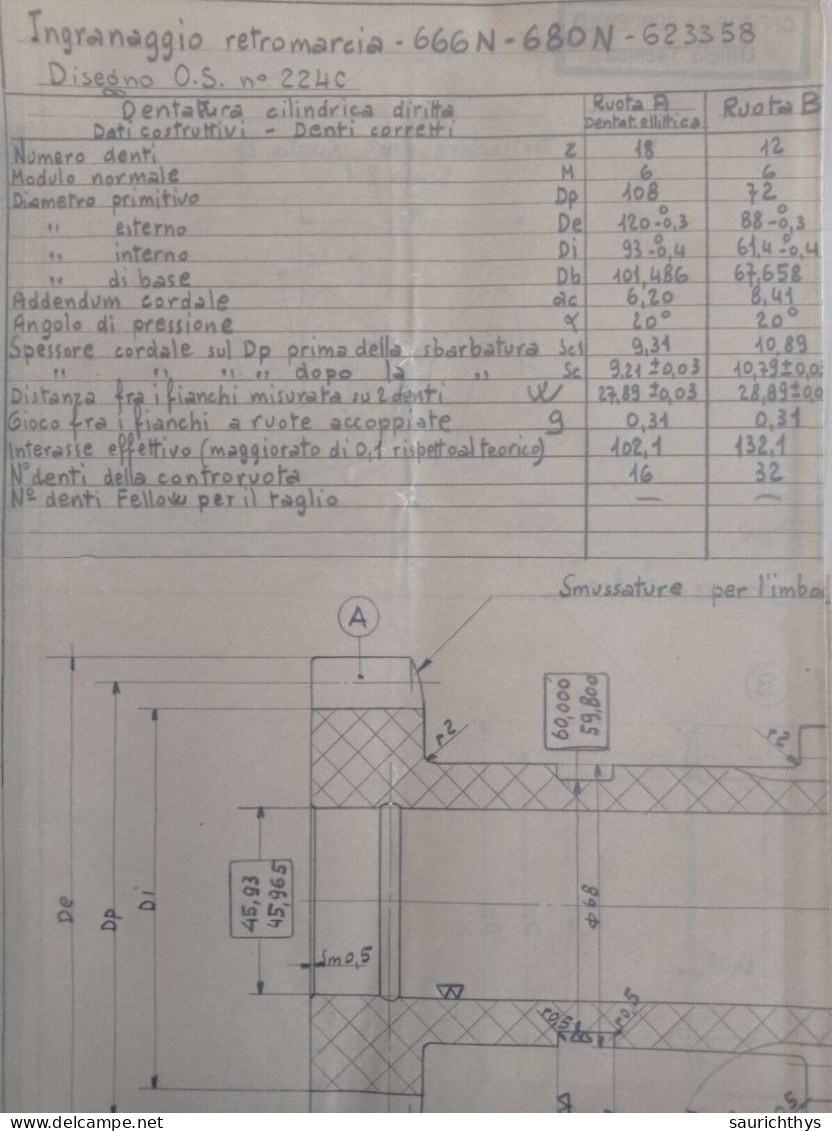 Ingranaggio retromarcia - 666N - 680N - 623358
Disegno O.S. n° 224C
Dentatura cilindrica diritta
Dati costruttivi - Denti corretti
Ruota A
Dentat. ellittica
Ruota B
Numero denti z 18 12
Modulo normale M 6 6
Diametro primitivo Dp 108 72
" esterno De 120 -0,3 0 88 -0,3 0
" interno Di 93 -0,4 0 61,4 -0,4 0
" di base Db 101,486 67,658
Addendum cordale ac 6,20 8,41
Angolo di pressione α 20° 20°
Spessore cordale sul Dp prima della sbarbatura Sc1 9,31 10,89
" " " " dopo la " Sc 9,21 ±0,03 10,79 ±0,0
Distanza fra i fianchi misurata su 2 denti W 27,89 ±0,03 28,89 ±0,0
Gioco fra i fianchi a ruote accoppiate g 0,31 0,31
Interasse effettivo (maggiorato di 0,1 rispetto al teorico) 102,1 132,1
N° denti della controruota 16 32
N° denti Fellow per il taglio — —
Smussature per l'imbo
A
B
60,000
59,800
r2
r2
De
Dp
Di
45,93
45,965
Φ68
Sm 0,5
r0,5
r0,5
0,5
saurichthys